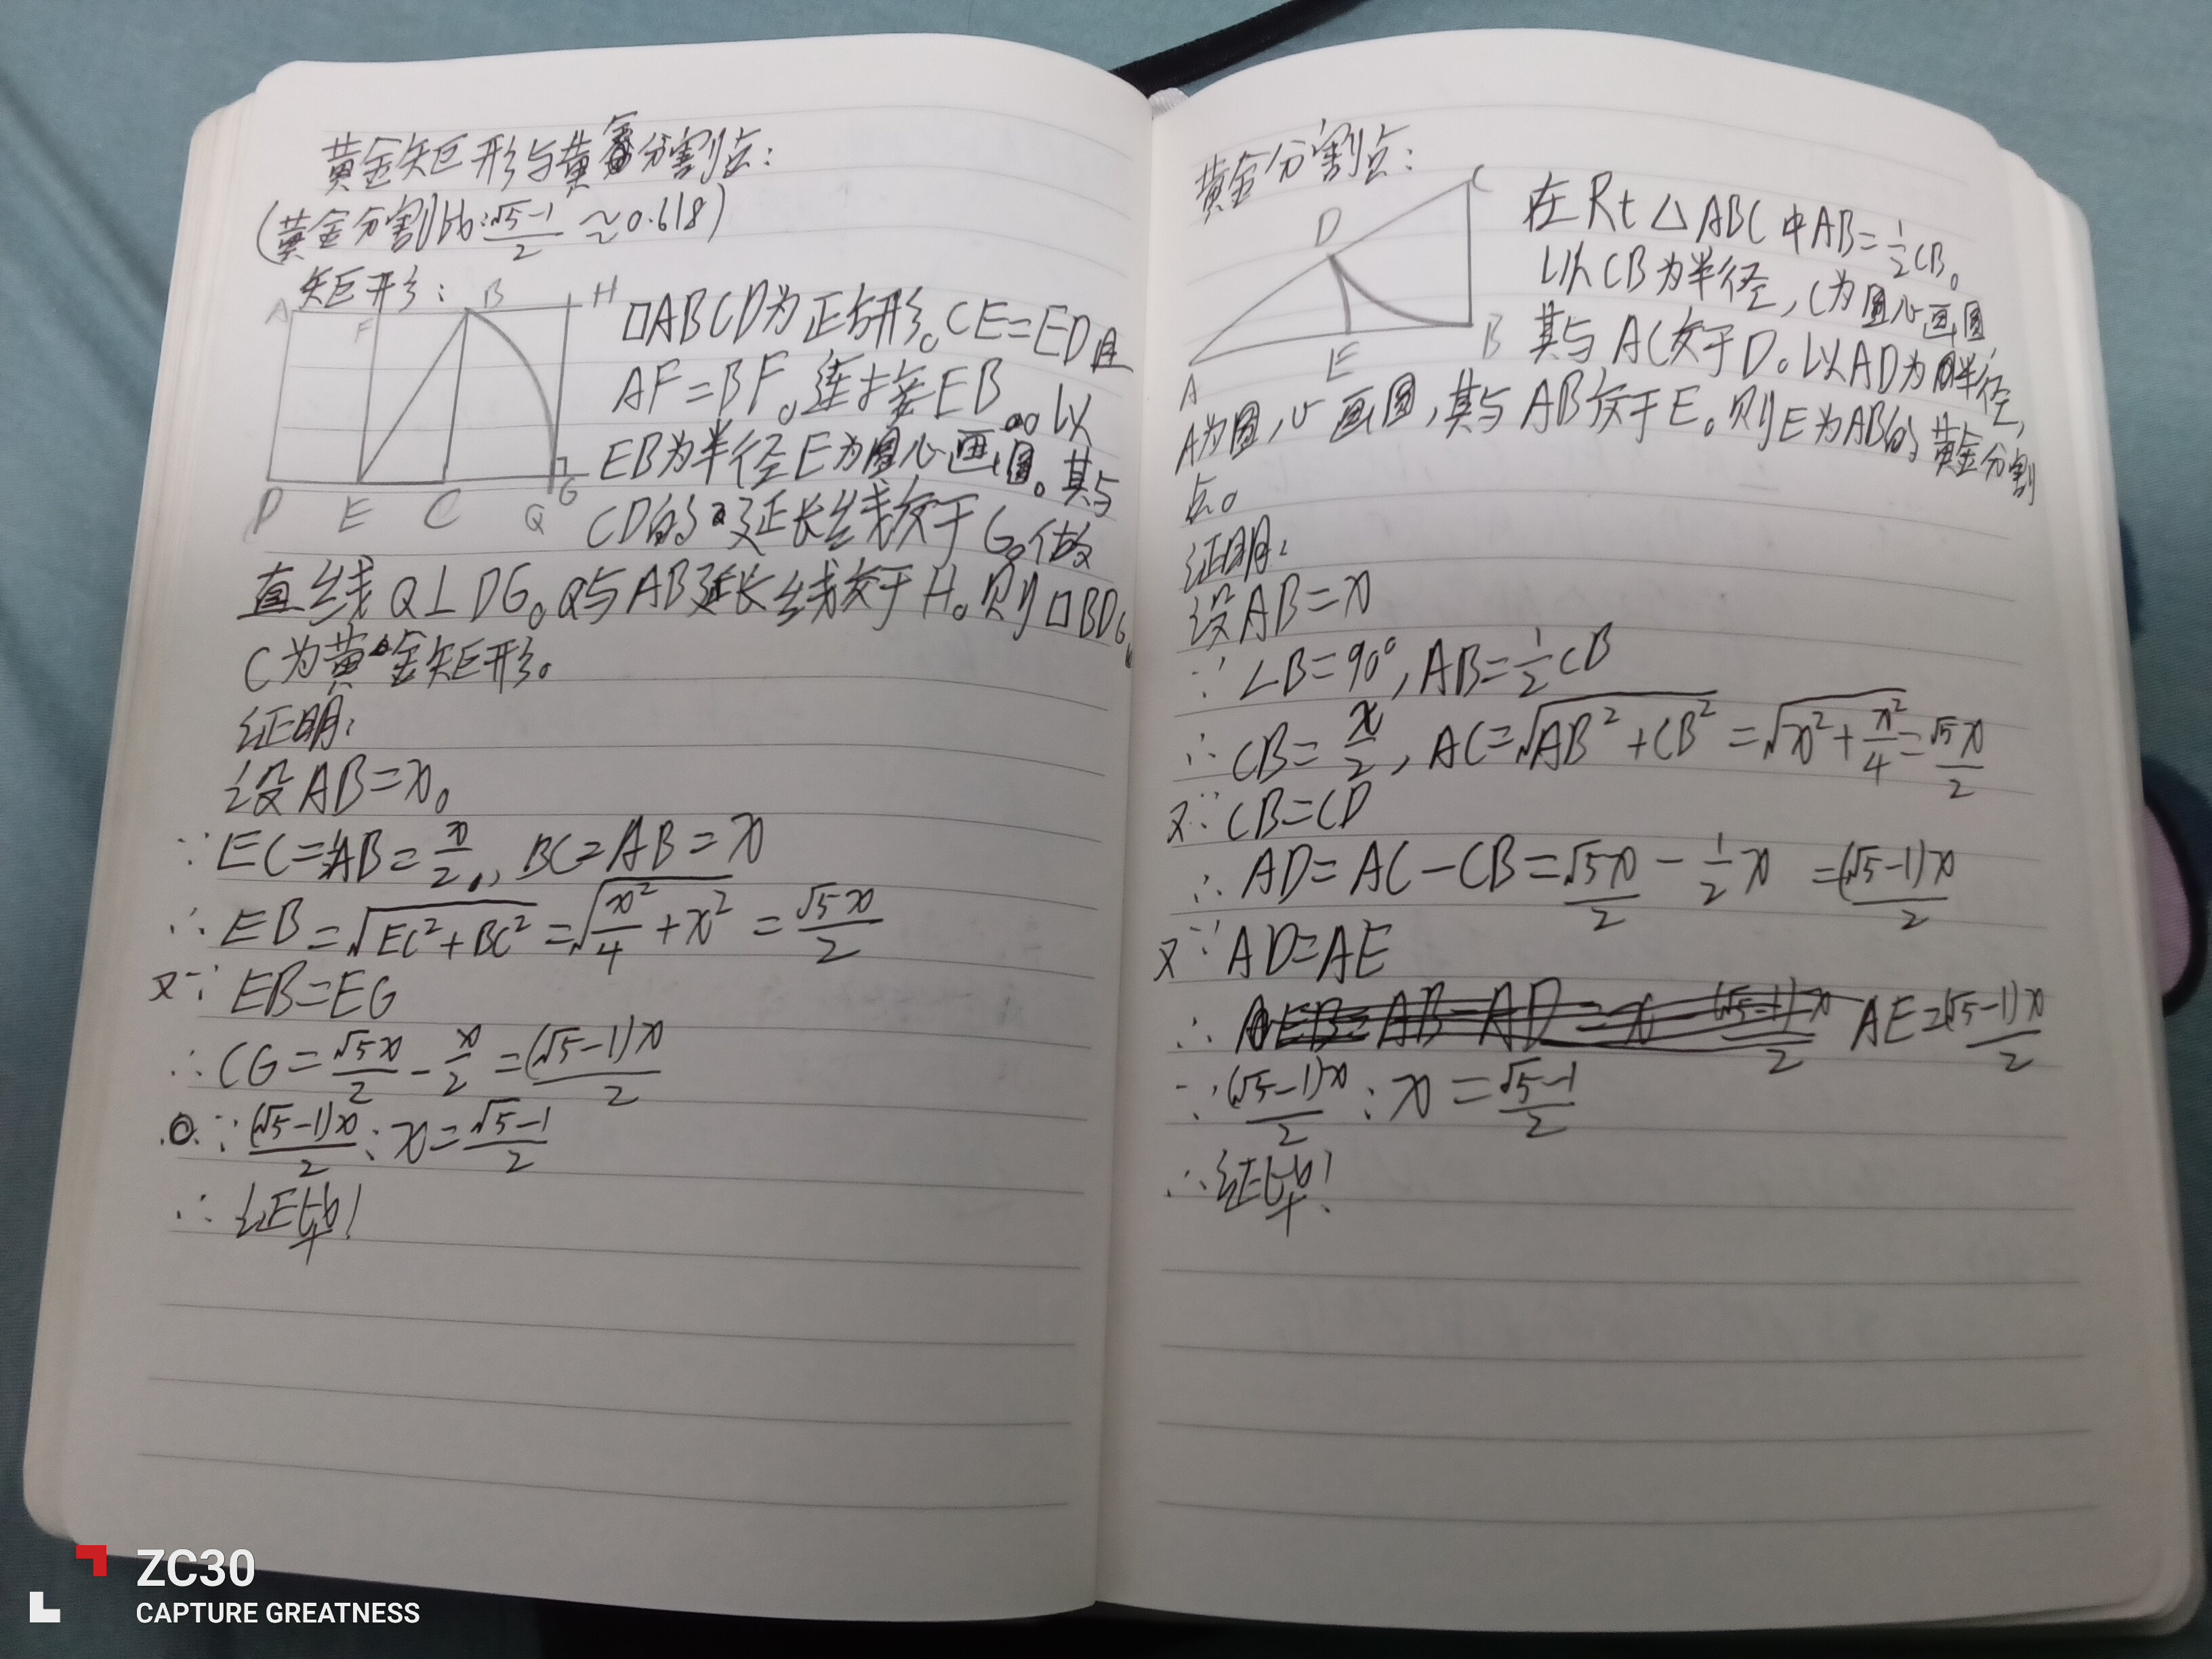 黄金矩形与黄金分割点：
（黄金分割比：(√5-1)/2 ≈0.618）
矩形：
A F B H
D E C Q G
□ABCD为正方形。CE=ED且
AF=BF。连接EB。以
EB为半径E为圆心画圆。其与
CD的延长线交于G。做
直线Q⊥DG。Q与AB延长线交于H。则□BDG
C为黄金矩形。
证明：
设AB=x。
∵EC=AB=x/2, BC=AB=x
∴EB=√(EC²+BC²)=√(x²/4+x²)=√5x/2
又∵EB=EG
∴CG=√5x/2-x/2=(√5-1)x/2
∵(√5-1)x/2:x=(√5-1)/2
∴证毕！
黄金分割点：
C
D
A E B
在Rt△ABC中AB=1/2CB。
以CB为半径，C为圆心画圆
其与AC交于D。以AD为半径，
A为圆心画圆，其与AB交于E。则E为AB的黄金分割
点。
证明：
设AB=x
∵∠B=90°,AB=1/2CB
∴CB=x/2,AC=√(AB²+CB²)=√(x²+x²/4)=√5x/2
又∵CB=CD
∴AD=AC-CB=√5x/2-1/2x=(√5-1)x/2
又∵AD=AE
∴EB=AB-AD=x-(√5-1)x/2 AE=(√5-1)x/2
∵(√5-1)x/2:x=(√5-1)/2
∴证毕！
ZC30
CAPTURE GREATNESS